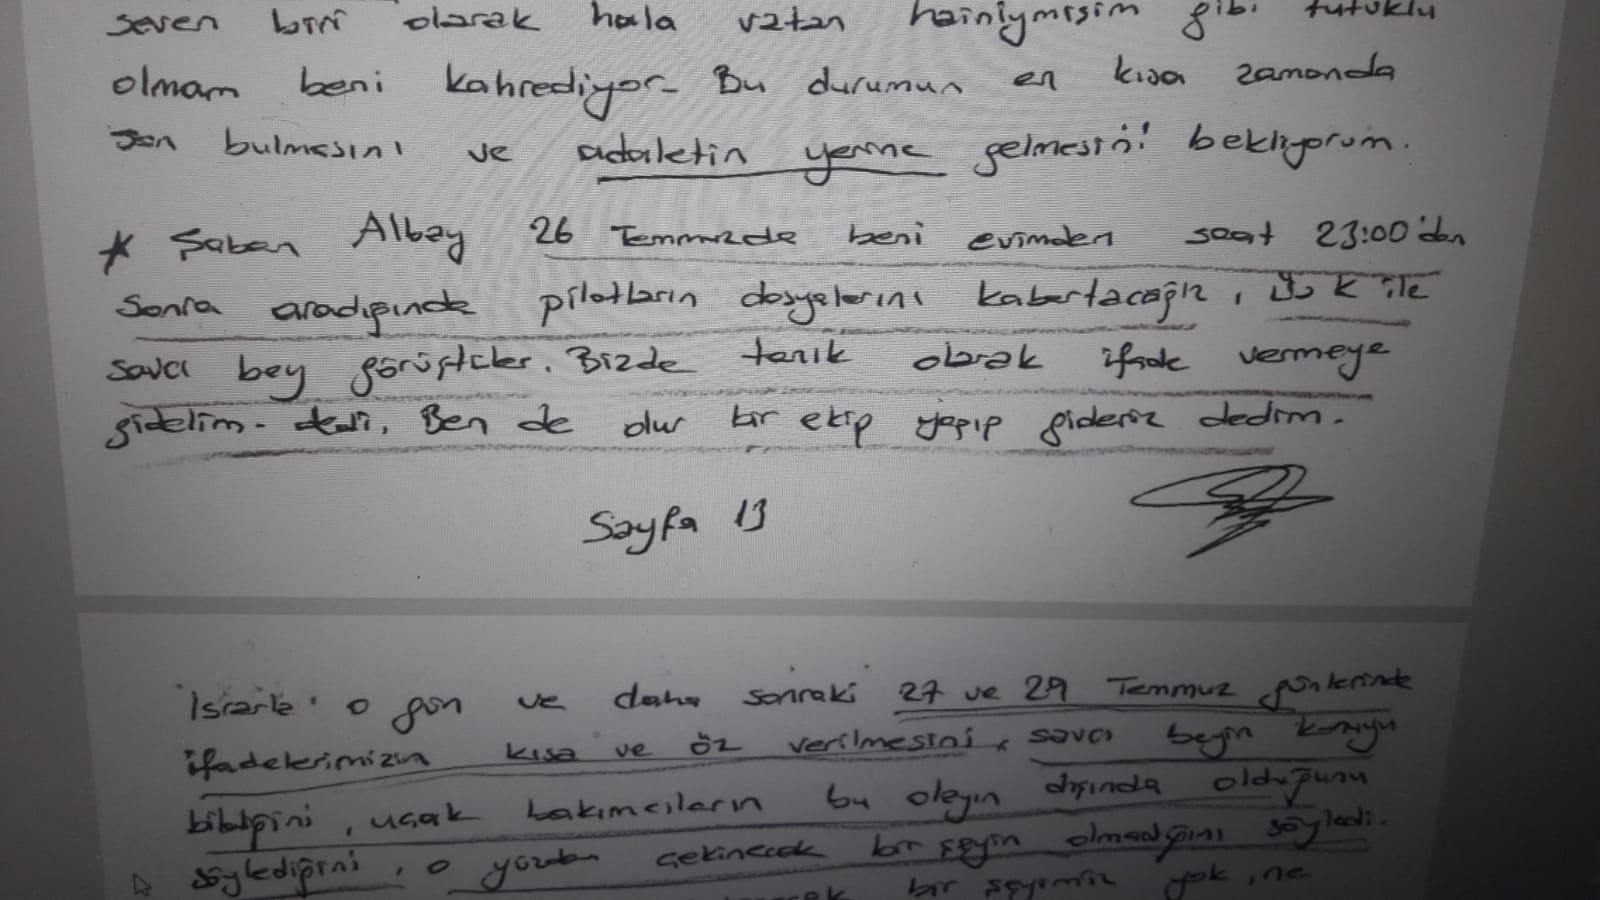 seven biri olarak hala vatan hainiymişim gibi tutuklu
olmam beni kahrediyor. Bu durumun en kısa zamanda
son bulmasını ve adaletin yerine gelmesini bekliyorum.
* Şaban Albay 26 Temmuzda beni evimden saat 23:00'dan
sonra aradığında pilotların dosyalarını kabartacağız, üs k ile
savcı bey görüştüler. Bizde tanık olarak ifade vermeye
gidelim. dedi. Ben de olur bir ekip yapıp gideriz dedim.
Sayfa 13
Israrla o gün ve daha sonraki 27 ve 29 Temmuz günlerinde
ifadelerimizin kısa ve öz verilmesini, savcı beyin konuyu
bildiğini, uçak bakımcıların bu olayın dışında olduğunu
söylediğini, o yüzden çekinecek bir şeyin olmadığını söyledi.
bir şeyimiz yok, ne